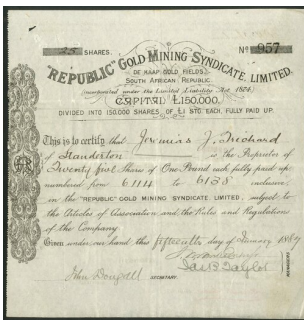 25 SHARES. No 957
"REPUBLIC" GOLD MINING SYNDICATE, LIMITED.
OF KAAP GOLD FIELDS,
SOUTH AFRICAN REPUBLIC.
(Incorporated under the Limited Liability Act, 1874)
CAPITAL £150,000.
DIVIDED INTO 150,000 SHARES OF £1 STG. EACH, FULLY PAID UP.
This is to certify that Jeremias J. Trichard
of Standerton is the Proprietor of
Twenty five Shares of One Pound each fully paid up;
numbered from 6114 to 6138 inclusive,
in the "REPUBLIC" GOLD MINING SYNDICATE LIMITED, subject to
the Articles of Association and the Rules and Regulations
of the Company.
Given under our hand this fifteenth day of January 1887
Jas. B. Taylor
John Dougall
SECRETARY.